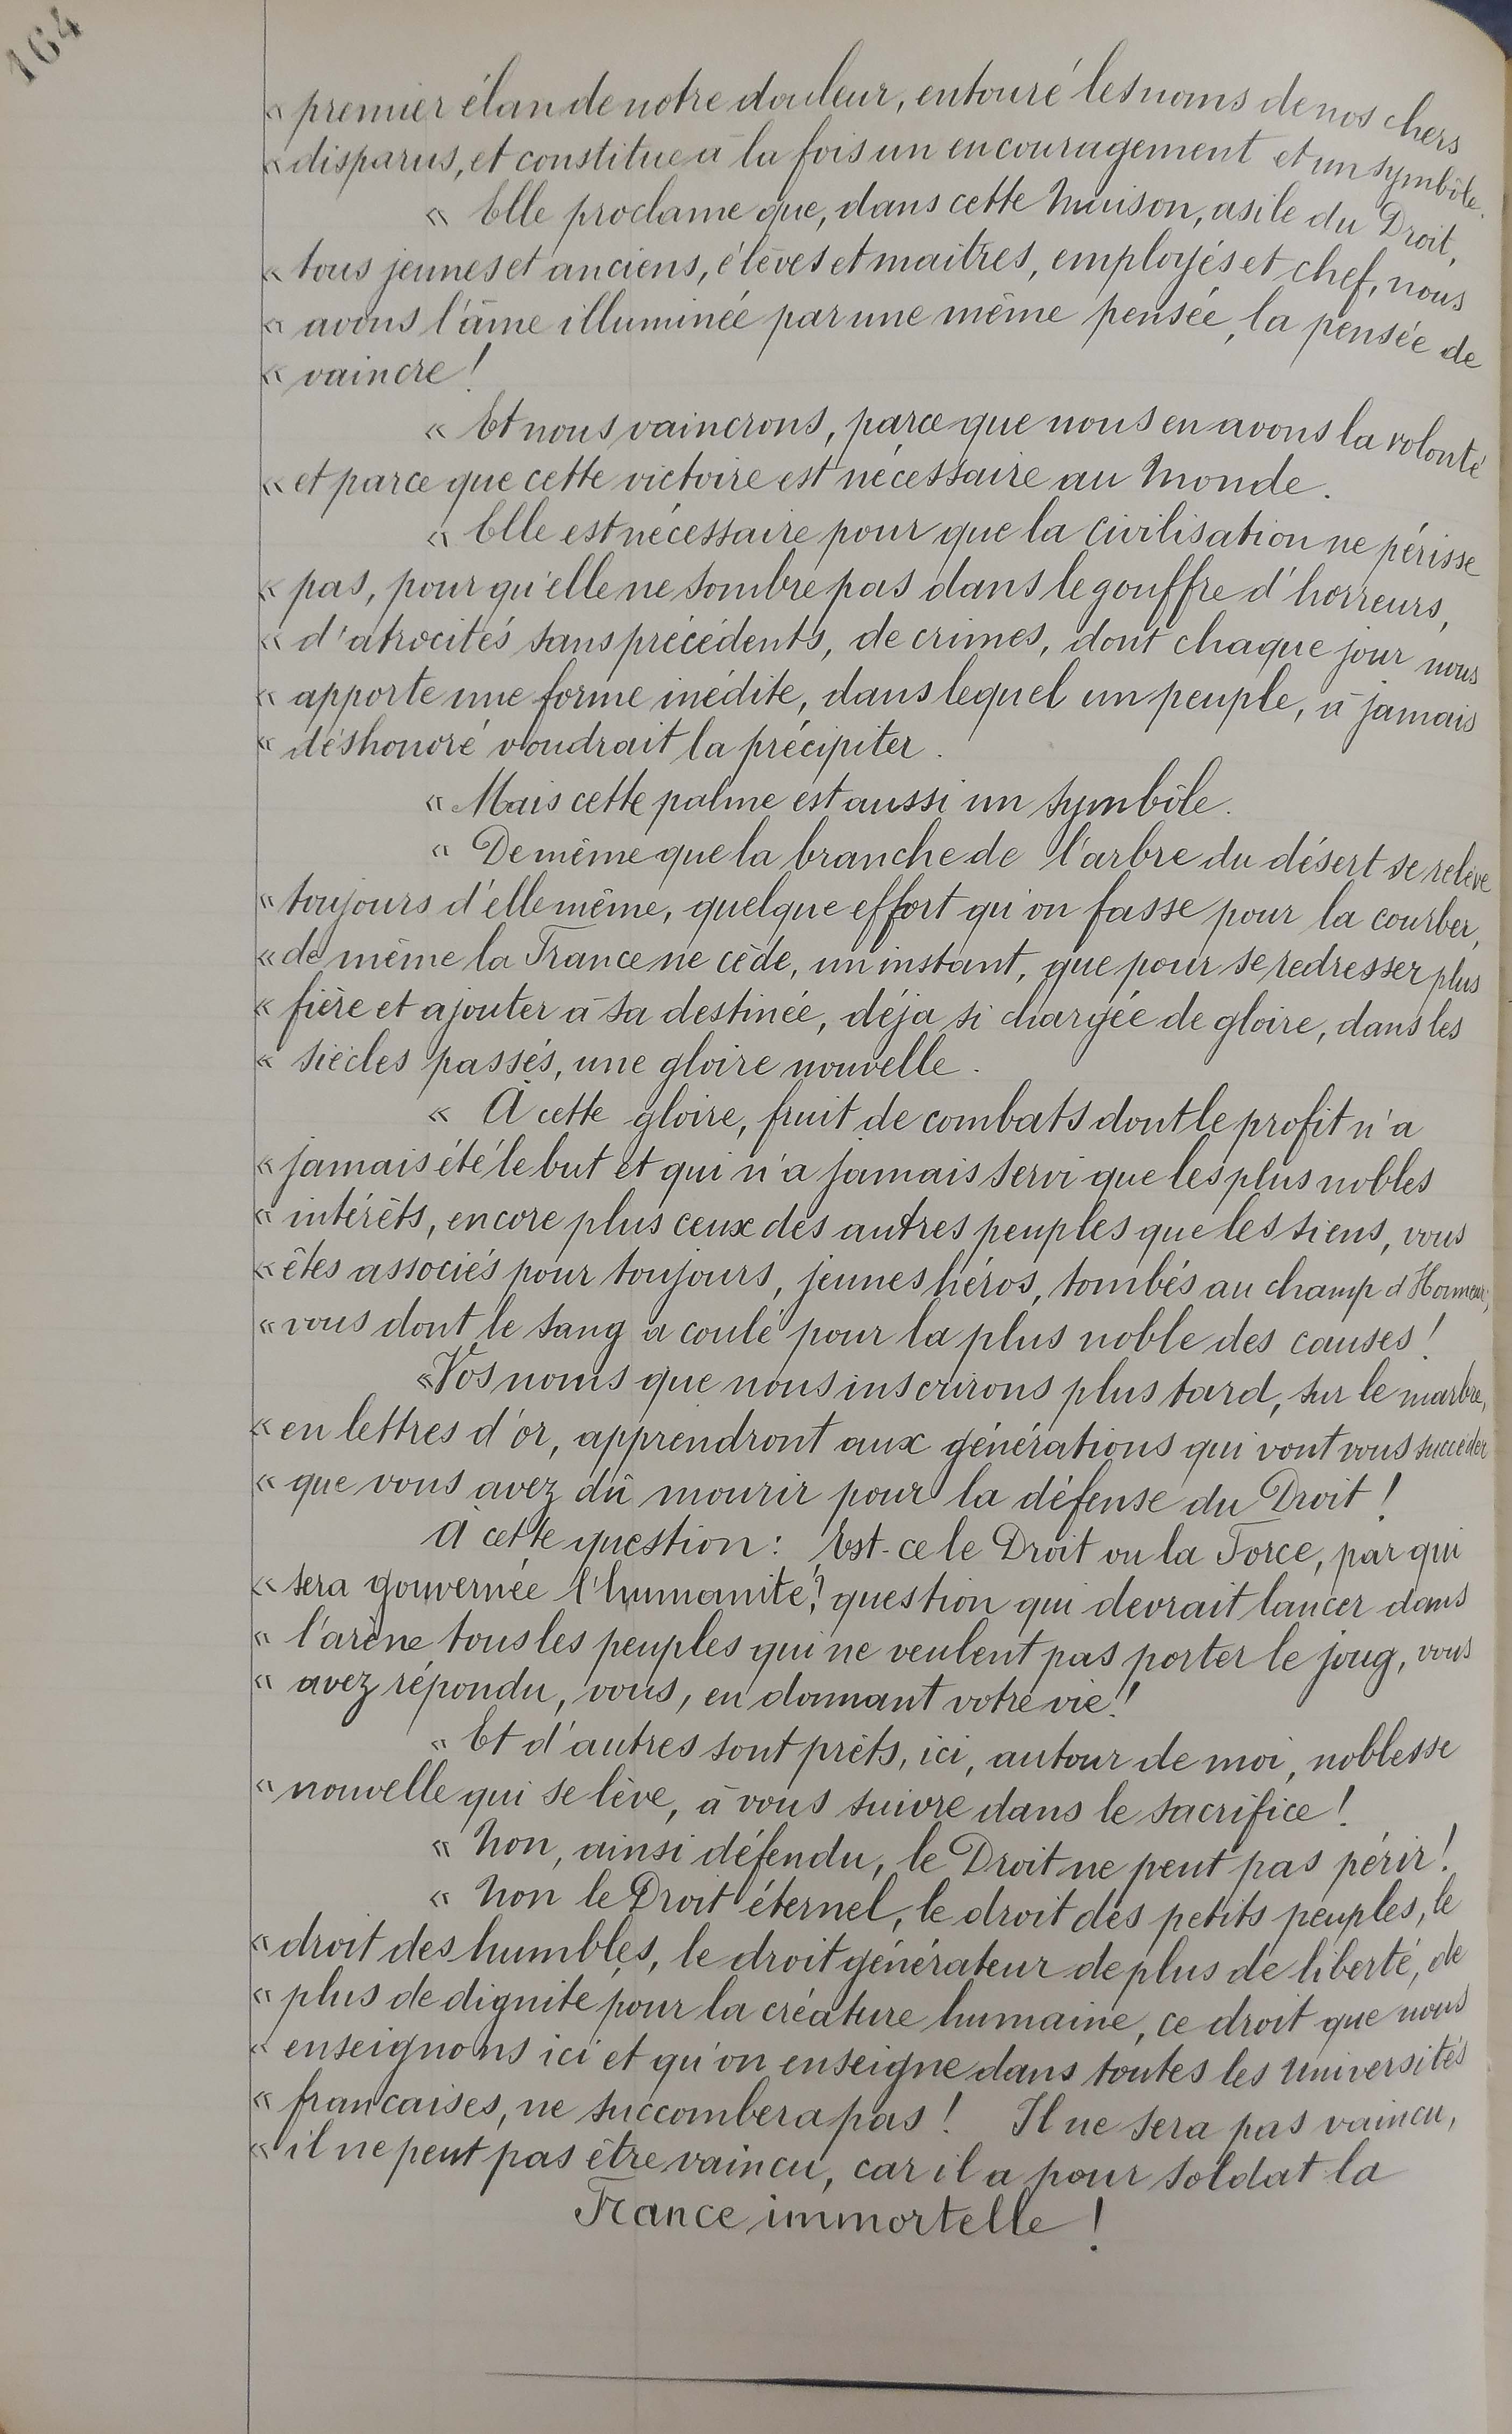 164
« premier élan de notre douleur, entouré les noms de nos chers
« disparus, et constitue à la fois un encouragement et un symbôle.
« Elle proclame que, dans cette Maison, asile du Droit,
« tous jeunes et anciens, élèves et maîtres, employés et chef, nous
« avons l'âme illuminée par une même pensée, la pensée de
« vaincre !
« Et nous vaincrons, parce que nous en avons la volonté
« et parce que cette victoire est nécessaire au Monde.
« Elle est nécessaire pour que la Civilisation ne périsse
« pas, pour qu'elle ne sombre pas dans le gouffre d'horreurs,
« d'atrocités sans précédents, de crimes, dont chaque jour nous
« apporte une forme inédite, dans lequel un peuple, à jamais
« déshonoré voudrait la précipiter.
« Mais cette palme est aussi un symbôle.
« De même que la branche de l'arbre du désert se relève
« toujours d'elle même, quelque effort qu'on fasse pour la courber,
« de même la France ne cède, un instant, que pour se redresser plus
« fière et ajouter à sa destinée, déja si chargée de gloire, dans les
« siècles passés, une gloire nouvelle.
« À cette gloire, fruit de combats dont le profit n'a
« jamais été le but et qui n'a jamais servi que les plus nobles
« intérêts, encore plus ceux des autres peuples que les siens, vous
« êtes associés pour toujours, jeunes héros, tombés au champ d'Honneur,
« vous dont le sang a coulé pour la plus noble des causes !
« Vos noms que nous inscrirons plus tard, sur le marbre,
« en lettres d'or, apprendront aux générations qui vont vous succéder
« que vous avez dû mourir pour la défense du Droit !
A cette question : Est-ce le Droit ou la Force, par qui
« sera gouvernée l'humanité ? question qui devrait lancer dans
« l'arène tous les peuples qui ne veulent pas porter le joug, vous
« avez répondu, vous, en donnant votre vie !
« Et d'autres sont prêts, ici, autour de moi, noblesse
« nouvelle qui se lève, à vous suivre dans le sacrifice !
« Non, ainsi défendu, le Droit ne peut pas périr !
« Non le Droit éternel, le droit des petits peuples, le
« droit des humbles, le droit générateur de plus de liberté, de
« plus de dignité pour la créature humaine, ce droit que nous
« enseignons ici et qu'on enseigne dans toutes les Universités
« francaises, ne succombera pas ! Il ne sera pas vaincu,
« il ne peut pas être vaincu, car il a pour soldat la
France immortelle !